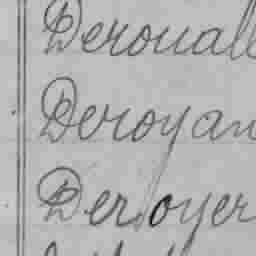 Derouall
Deroyan
Deroyer